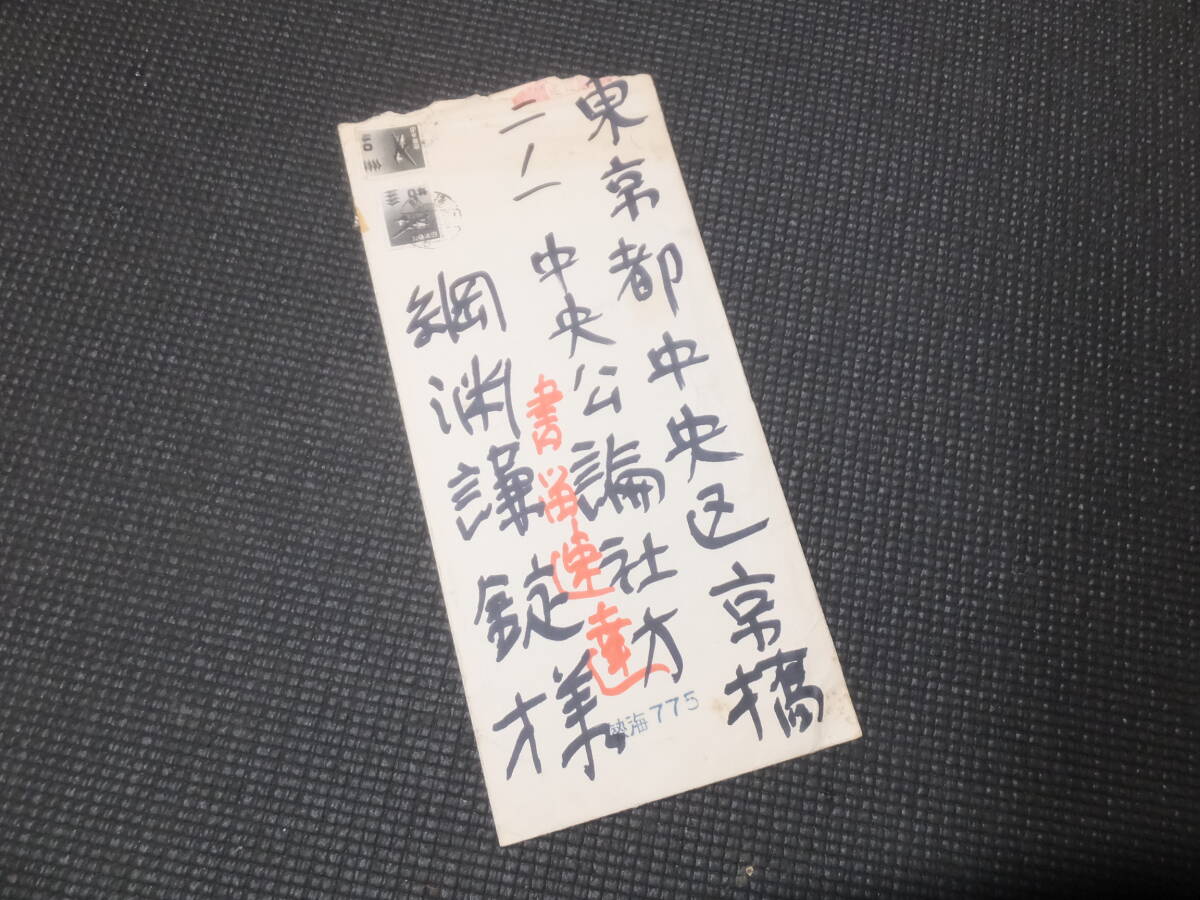 東京都中央区京橋
二ノ一
中央公論社方
綱淵謙錠様
書留速達
熱海775